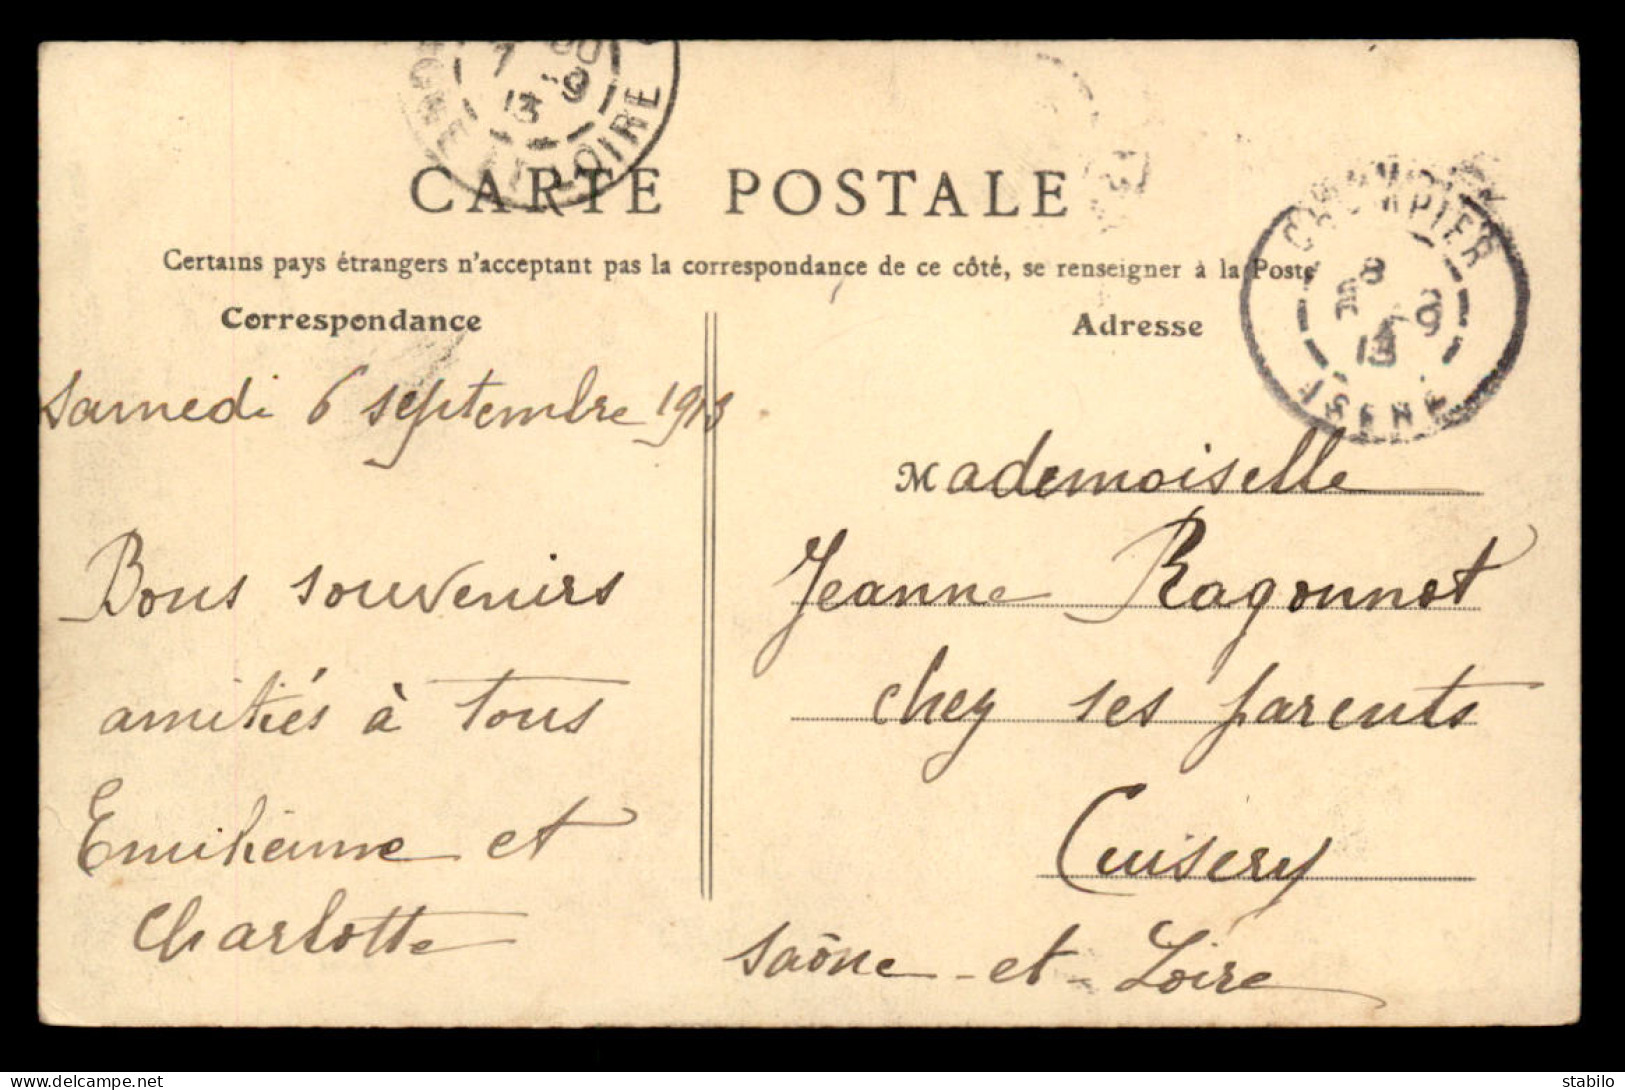 7 9
13
LOIRE
CARTE POSTALE
Certains pays étrangers n'acceptant pas la correspondance de ce côté, se renseigner à la Poste
CHAMPIER
8
9
13
ISERE
Correspondance
Adresse
Samedi 6 septembre 1913
Bons souvenirs
amitiés à tous
Emilienne et
Charlotte
Mademoiselle
Jeanne Ragonnot
chez ses parents
Cuisery
Saône-et-Loire
stabilo